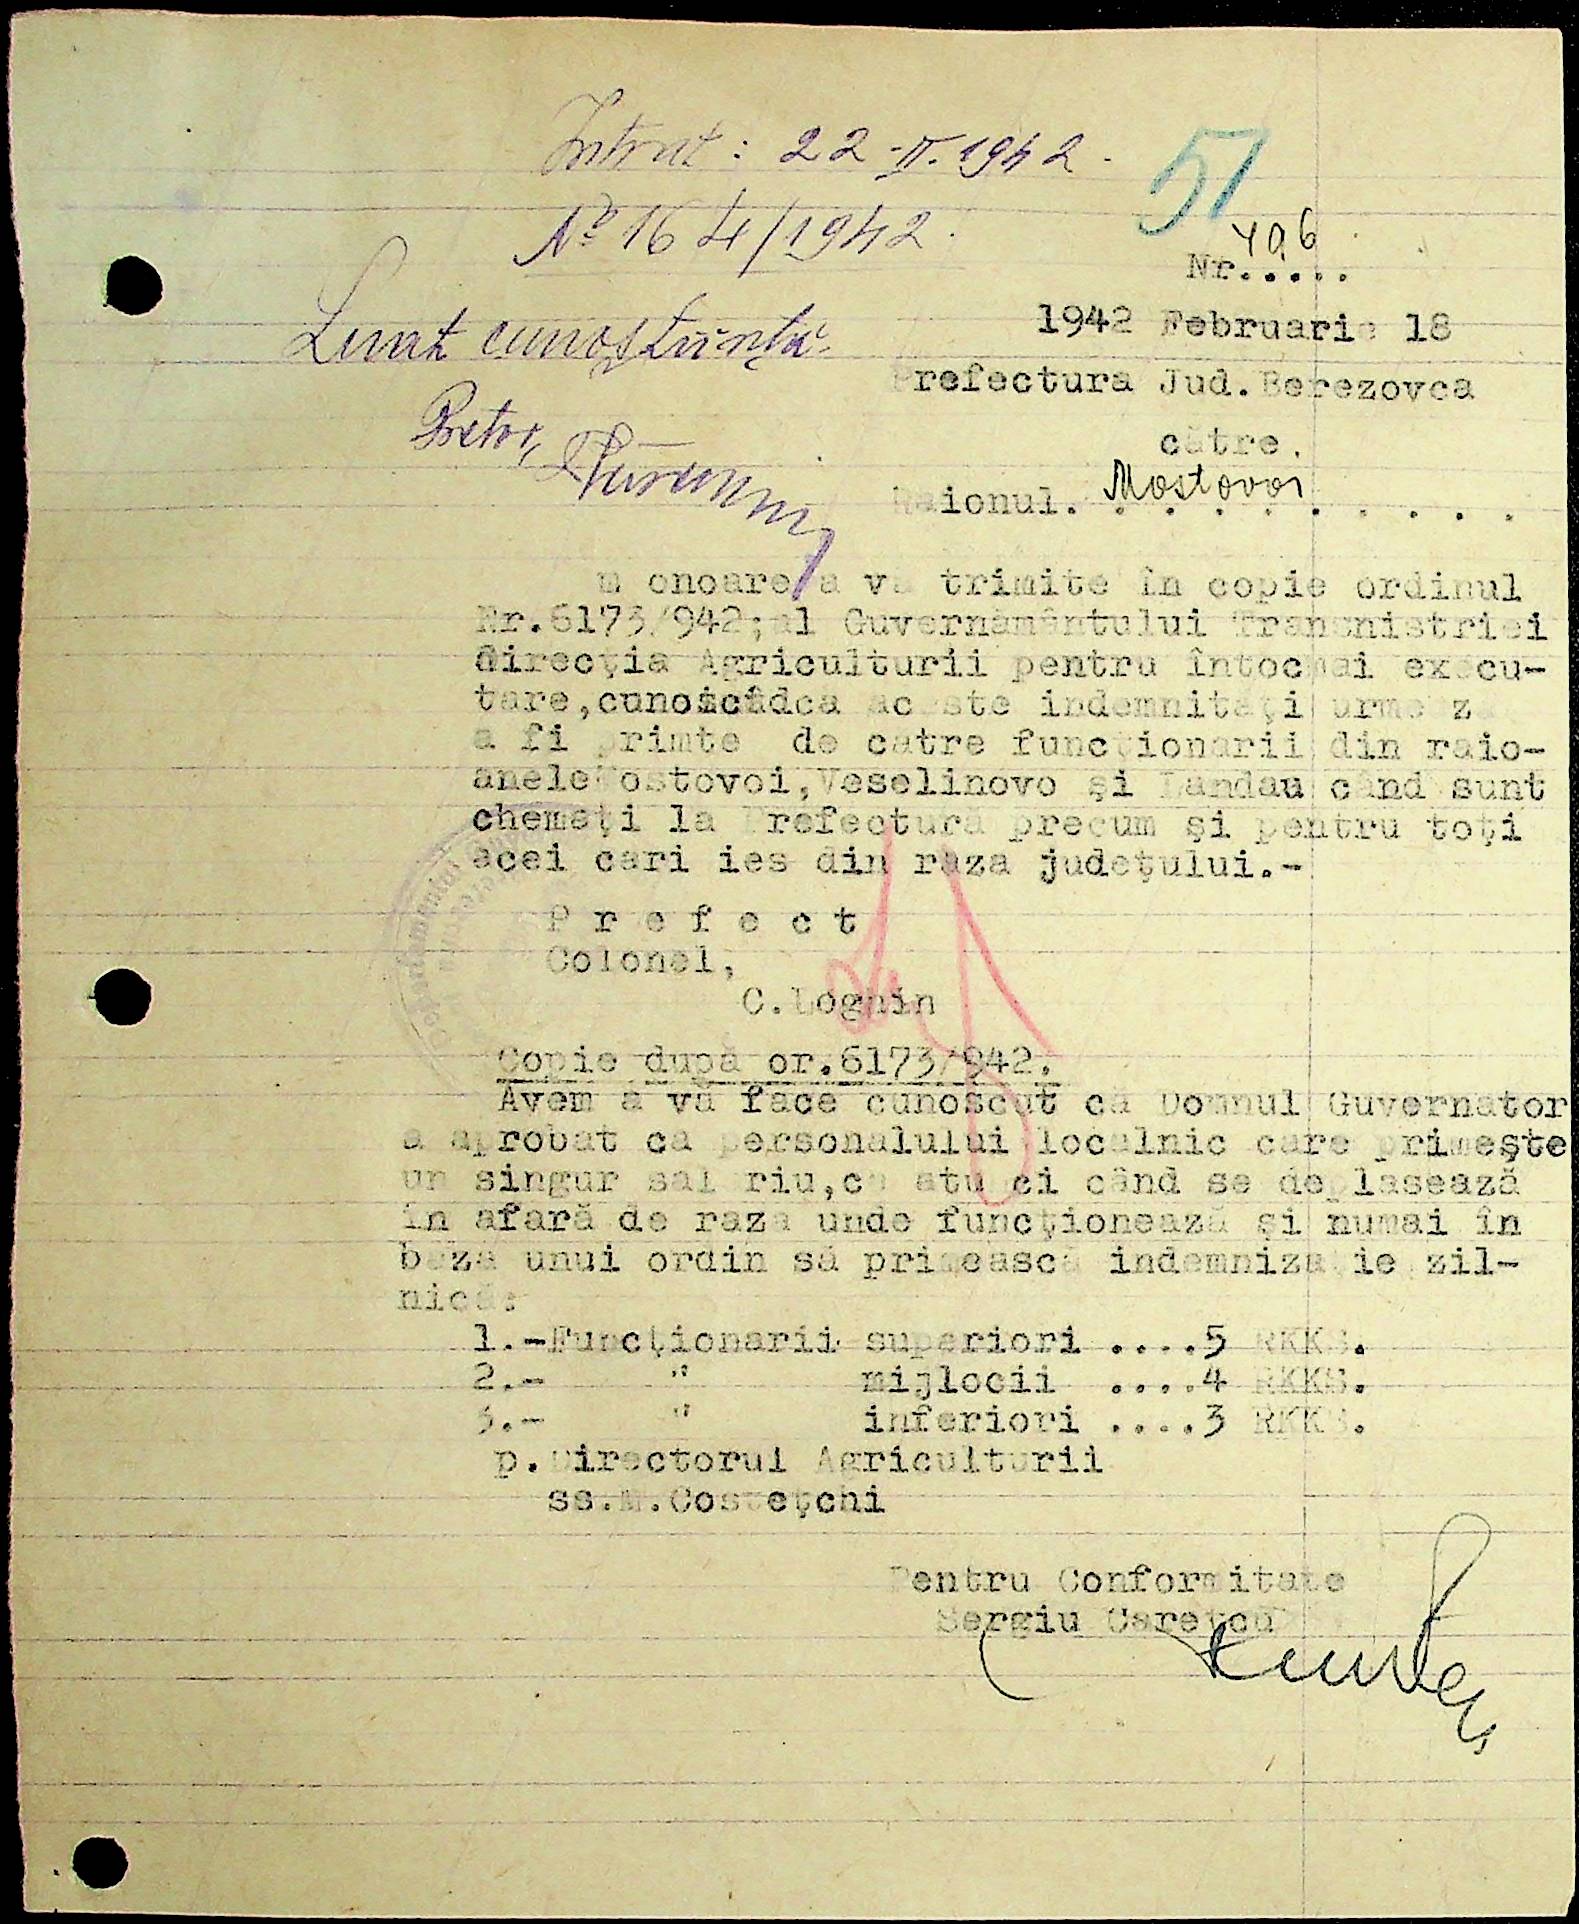 Intrat: 22-II.1942.
51
No 164/1942.
496
Nr.....
1942 Februarie 18
Luat cunoştiinţă
Prefectura Jud.Berezovca
Pretor,
către.
Raionul. Mostovoi
m onoarea a vă trimite în copie ordinul
Nr.6173/942;al Guvernământului Transnistriei
direcţia Agriculturii pentru întocmai execu-
tare, aceste indemnităţi urmează
a fi primte de catre funcţionarii din raio-
anele Mostovoi,Veselinovo şi Landau când sunt
chemeţi la Prefectura precum şi pentru toţi
acei cari ies din raza judeţului.-
P r e f e c t
Colonel,
C.Loghin
Copie după or.6173/942.
Avem a vă face cunoscut că Domnul Guvernator
a aprobat ca personalului localnic care primeşte
un singur salariu,ca atunci când se deplasează
în afară de raza unde funcţionează şi numai în
baza unui ordin să primească indemnizaţie zil-
nică:
1.-Funcţionarii superiori ....5 RKKS.
2.- " mijlocii ....4 RKKS.
3.- " inferiori ....3 RKKS.
p.Directorul Agriculturii
ss.M.Costeţchi
Pentru Conformitate
Sergiu